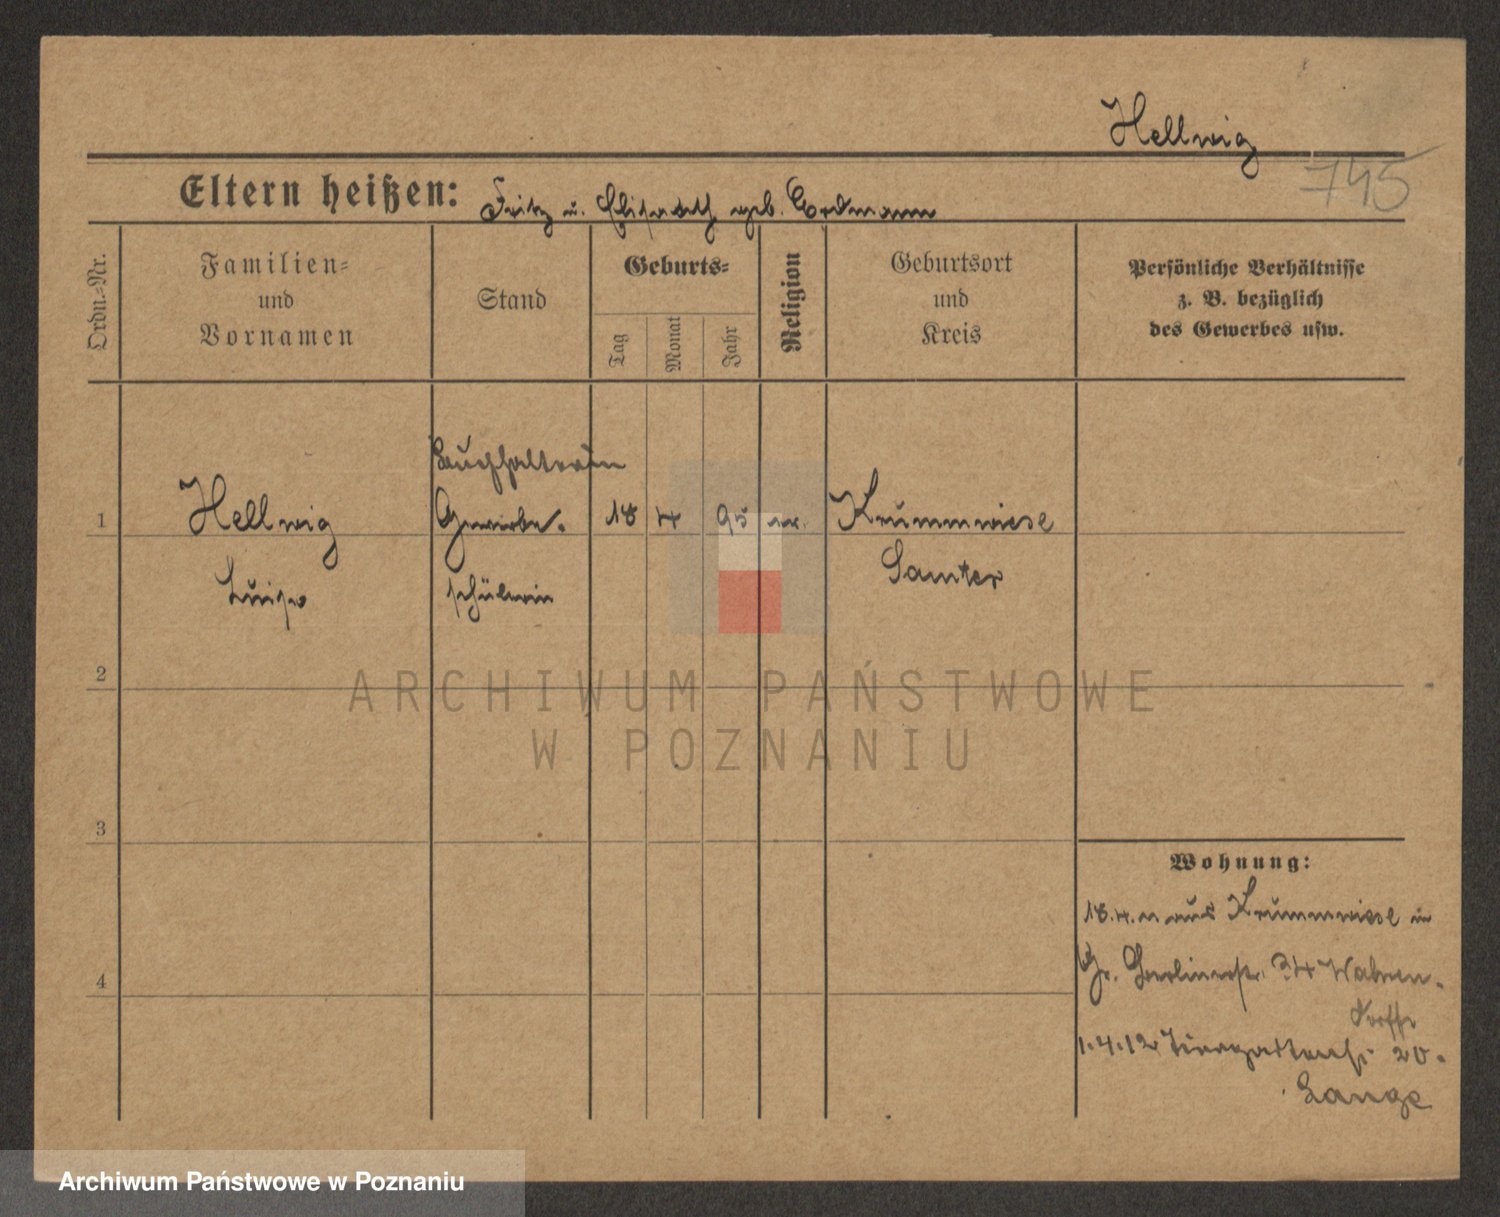 Hellwig
745
Eltern heißen: Fritz u. Elisabeth geb. Erdmann
Ordn.-Nr.
Familien-
und
Vornamen
Stand
Geburts-
Tag
Monat
Jahr
Religion
Geburtsort
und
Kreis
Persönliche Verhältnisse
z. B. bezüglich
des Gewerbes usw.
Buchhalterin
1 Hellwig Gewerbe- 18 4 95 ev. Krummwiese
Luise schülerin Samter
2
ARCHIWUM PAŃSTWOWE
W POZNANIU
3
Wohnung:
18.4.11 aus Krummwiese in
Gr. Berlinerstr. 34 Wahren-
4
dorff
1.4.12 Tiergartenstr. 20.
Lange
Archiwum Państwowe w Poznaniu